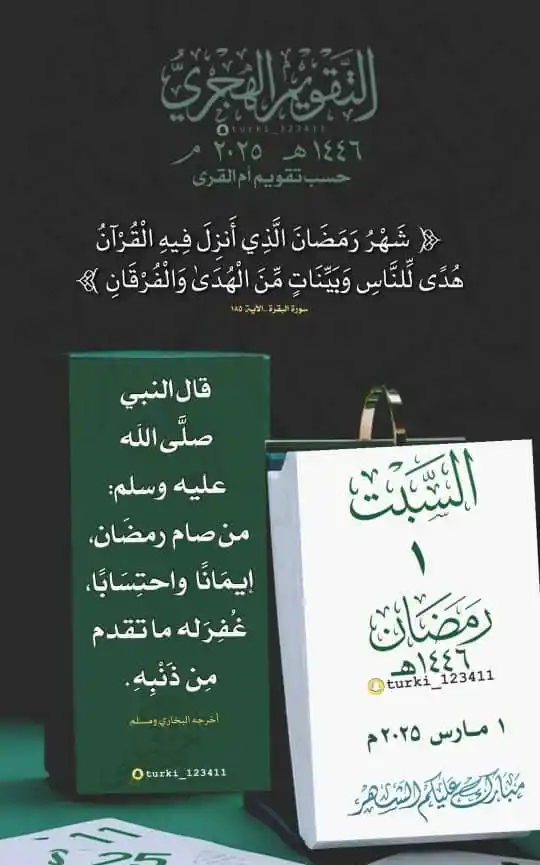 التقويم الهجري
turki_123411
١٤٤٦ هـ ٢٠٢٥ م
حسب تقويم أم القرى
﴿ شَهْرُ رَمَضَانَ الَّذِي أُنزِلَ فِيهِ الْقُرْآنُ
هُدًى لِّلنَّاسِ وَبَيِّنَاتٍ مِّنَ الْهُدَىٰ وَالْفُرْقَانِ ﴾
سورة البقرة ..الآية ١٨٥
قال النبي
صلَّى اللَه
عليه وسلم:
من صام رمضَان،
إيمَانًا واحتِسَابًا،
غُفِرَ له ما تقدم
مِن ذَنْبِهِ.
أخرجه البخاري ومسلم
turki_123411
السَّبْت
١
رمَضَان
١٤٤٦هـ
turki_123411
١ مارس ٢٠٢٥م
مبارك عليكم الشهر
11
25